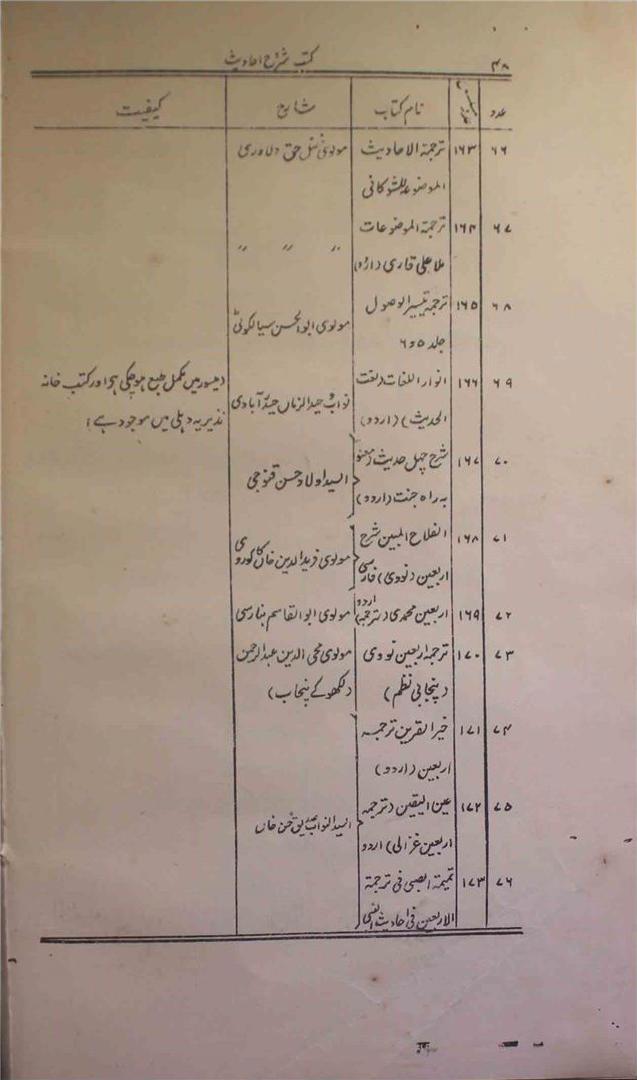 ۴۸ کتب شروح احادیث
عدد نام کتاب شارح کیفیت
۶۶ ۱۶۳ ترجمۃ الاحادیث مولوی فضل حق دلاوری
الموضوعہ للشوکانی
۶۷ ۱۶۴ ترجمۃ الموضوعات " " "
ملا علی قاری (اردو)
۶۸ ۱۶۵ ترجمہ تیسیر الوصول مولوی ابوالحسن سیالکوٹی
جلد ۵ و ۶
۶۹ ۱۶۶ انوار اللغات (لغت نواب وحید الزماں حیدرآبادی (میسور میں مکمل طبع ہو چکی ہے اور کتب خانہ
الحدیث) (اردو) نذیریہ دہلی میں موجود ہے)
۷۰ ۱۶۷ شرح چہل حدیث السید اولاد حسن قنوجی
بہ راہ جنت (اردو)
۷۱ ۱۶۸ الفلاح المبین شرح مولوی فرید الدین خاں کاکوروی
اربعین (نووی) فارسی
۷۲ ۱۶۹ اربعین محمدی (ترجمہ) اردو مولوی ابوالقاسم بنارسی
۷۳ ۱۷۰ ترجمہ اربعین نووی مولوی محی الدین عبدالرحمن
(پنجابی نظم) (لکھوکے پنجاب)
۷۴ ۱۷۱ خیر القرین ترجمہ
اربعین (اردو)
۷۵ ۱۷۲ عین الیقین (ترجمہ السید النواب صدیق حسن خاں
اربعین غزالی) اردو
۷۶ ۱۷۳ تمیمۃ الصبی فی ترجمۃ
الاربعین فی احادیث النبی